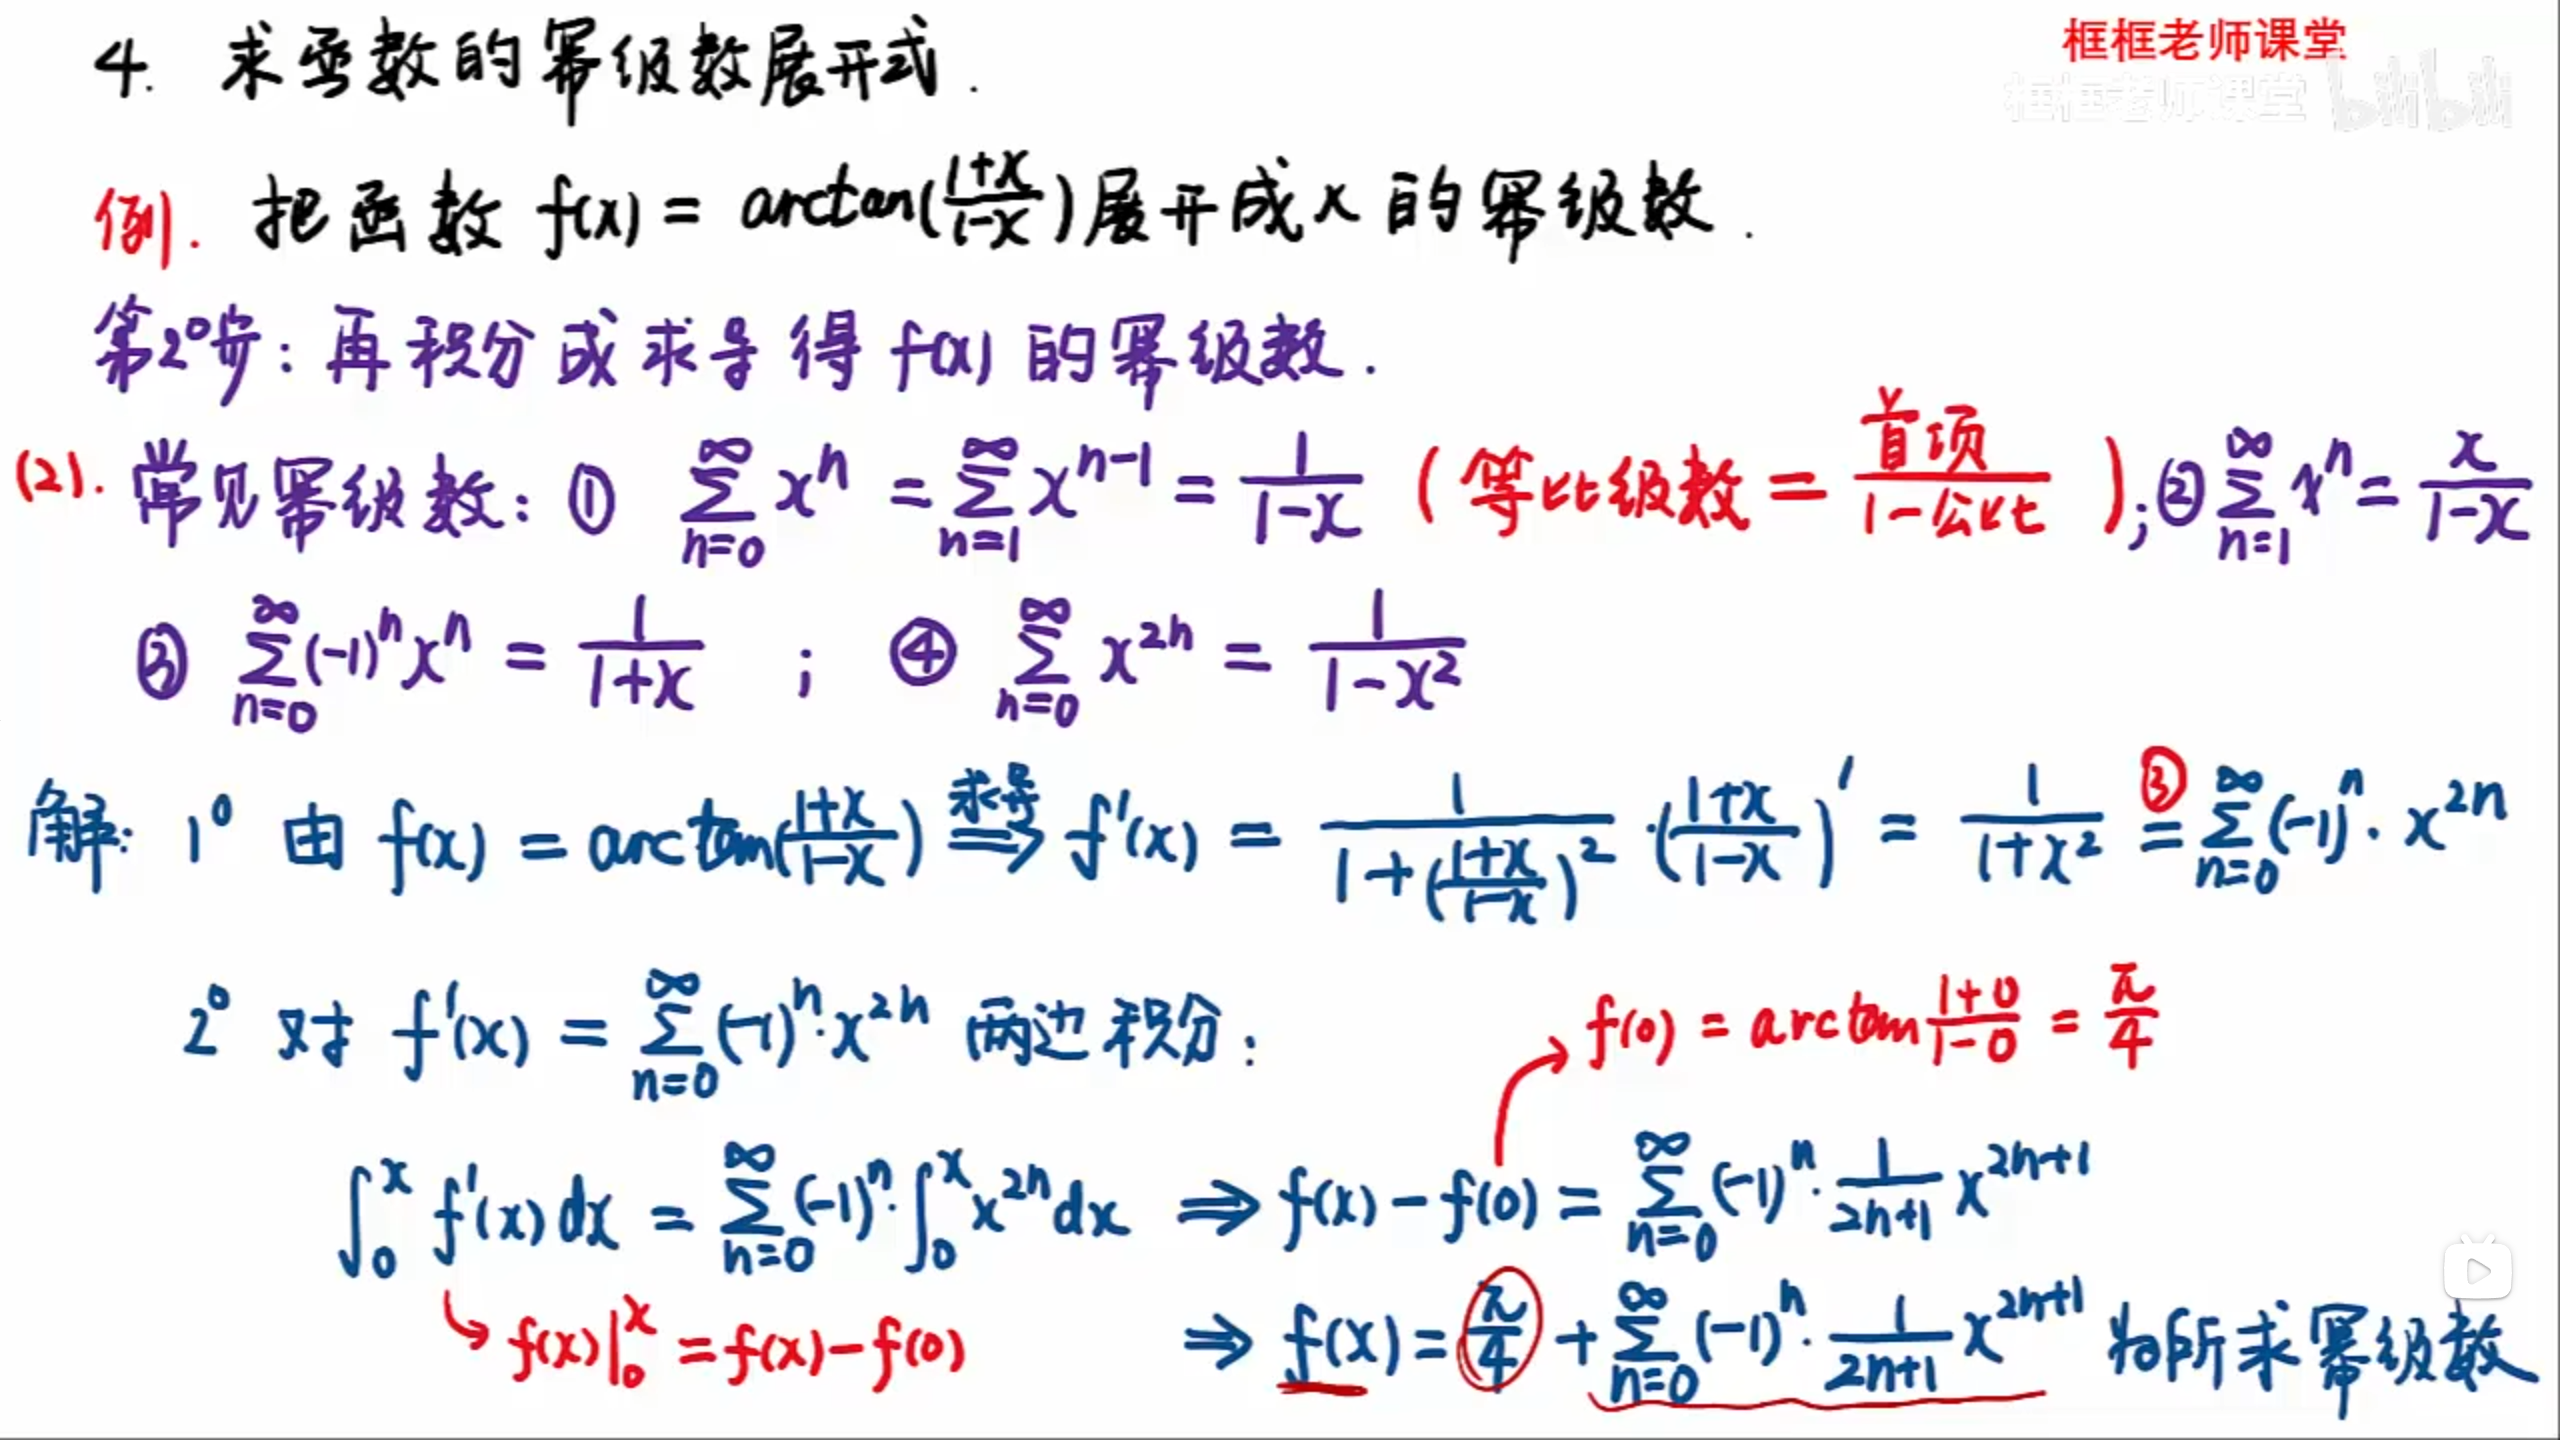 框框老师课堂
框框老师课堂 bilibili
4. 求函数的幂级数展开式.
例. 把函数 f(x) = arctan((1+x)/(1-x)) 展开成 x 的幂级数.
第2°步: 再积分或求导得 f(x) 的幂级数.
(2). 常见幂级数: ① ∑_{n=0}^{∞} x^n = ∑_{n=1}^{∞} x^{n-1} = 1/(1-x) (等比级数 = 首项/(1-公比)); ② ∑_{n=1}^{∞} x^n = x/(1-x)
③ ∑_{n=0}^{∞} (-1)^n x^n = 1/(1+x) ; ④ ∑_{n=0}^{∞} x^{2n} = 1/(1-x^2)
解: 1° 由 f(x) = arctan((1+x)/(1-x)) 求导⇒ f'(x) = 1/(1+((1+x)/(1-x))^2) · ((1+x)/(1-x))' = 1/(1+x^2) ③= ∑_{n=0}^{∞} (-1)^n · x^{2n}
2° 对 f'(x) = ∑_{n=0}^{∞} (-1)^n · x^{2n} 两边积分:
f(0) = arctan (1+0)/(1-0) = π/4
∫_0^x f'(x) dx = ∑_{n=0}^{∞} (-1)^n · ∫_0^x x^{2n} dx ⇒ f(x) - f(0) = ∑_{n=0}^{∞} (-1)^n · 1/(2n+1) x^{2n+1}
f(x)|_0^x = f(x) - f(0)
⇒ f(x) = π/4 + ∑_{n=0}^{∞} (-1)^n · 1/(2n+1) x^{2n+1} 为所求幂级数